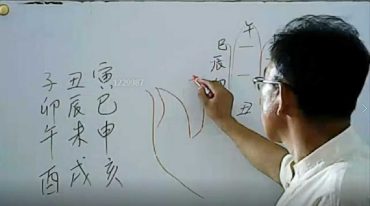 寅巳申亥
丑辰未戌
子卯午酉
午
巳
辰
丑
1229987